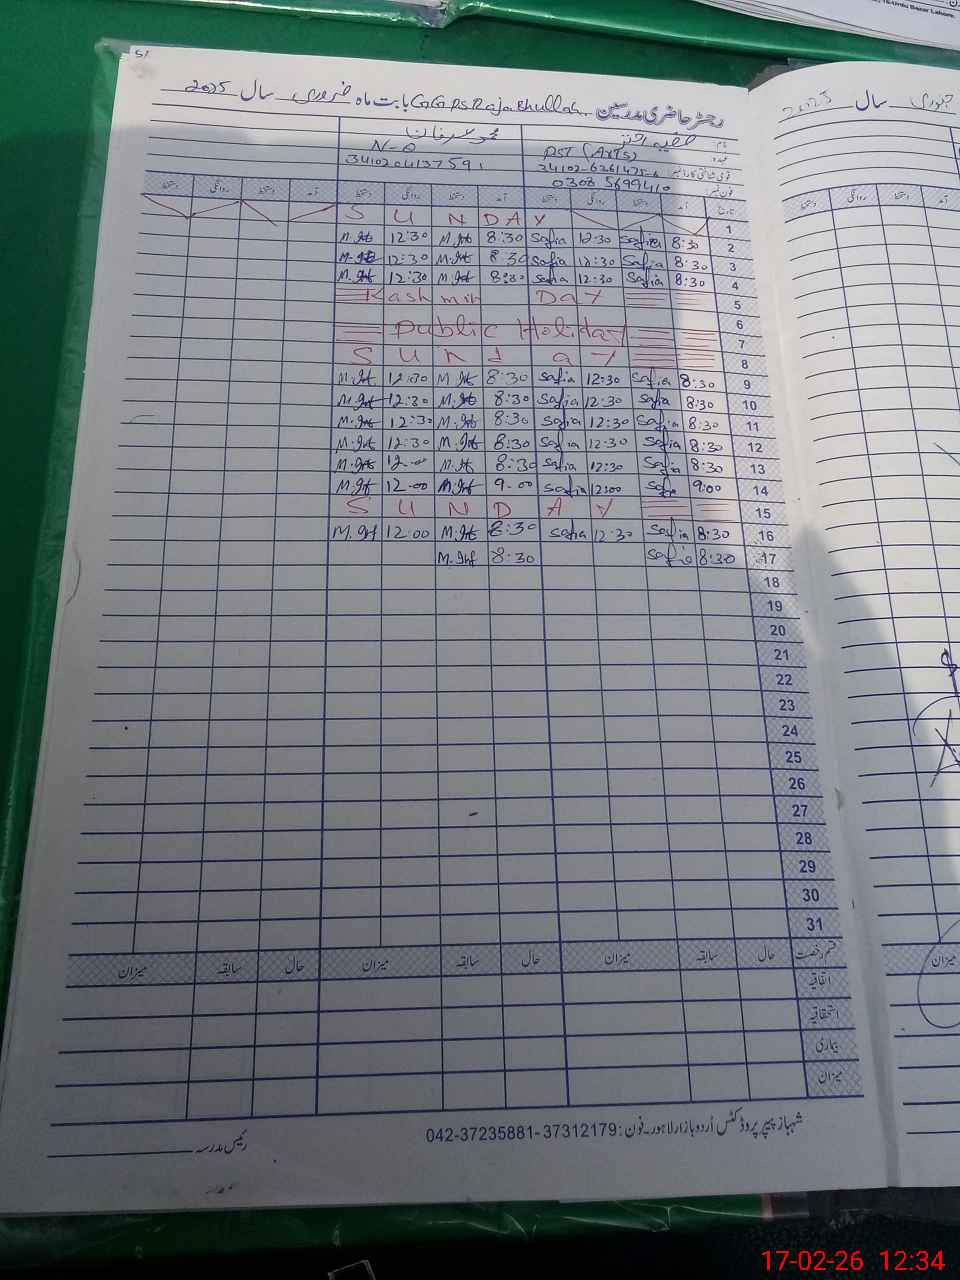 51
رجسٹر حاضری مدرسین GGPS Raja Bhullah بابت ماہ فروری سال 2025
نام
عہدہ PST (Arts) N-Q
قومی شناختی کارڈ نمبر 34102-6261475-6 3410204137591
فون نمبر 0303 5699410
تاریخ آمد دستخط روانگی دستخط آمد دستخط روانگی دستخط آمد دستخط روانگی دستخط
1 S U N D A Y
2 8:30 Safia 12:30 Safia 8:30 M.Irf 12:30 M.Irf
3 8:30 Safia 12:30 Safia 8:30 M.Irf 12:30 M.Irf
4 8:30 Safia 12:30 Safia 8:30 M.Irf 12:30 M.Irf
5 Kashmir Day
6 Public Holiday
7
8 S u n d a y
9 8:30 Safia 12:30 Safia 8:30 M.Irf 12:30 M.Irf
10 8:30 Safia 12:30 Safia 8:30 M.Irf 12:30 M.Irf
11 8:30 Safia 12:30 Safia 8:30 M.Irf 12:30 M.Irf
12 8:30 Safia 12:30 Safia 8:30 M.Irf 12:30 M.Irf
13 8:30 Safia 12:30 Safia 8:30 M.Irf 12.00 M.Irf
14 9:00 Safia 12:00 Safia 9.00 M.Irf 12.00 M.Irf
15 S U N D A Y
16 8:30 Safia 12:30 Safia 8:30 M.Irf 12:00 M.Irf
17 8:30 Safia 8:30 M.Irf
18
19
20
21
22
23
24
25
26
27
28
29
30
31
قسم رخصت حال سابقہ میزان حال سابقہ میزان حال سابقہ میزان
اتفاقیہ
استحقاقیہ
بیماری
میزان
شہباز پیپر پروڈکٹس اُردو بازار لاہور۔فون: 042-37235881-37312179
رئیس مدرسہ
سال 2025
میزان
Urdu Bazar Lahore.
17-02-26 12:34